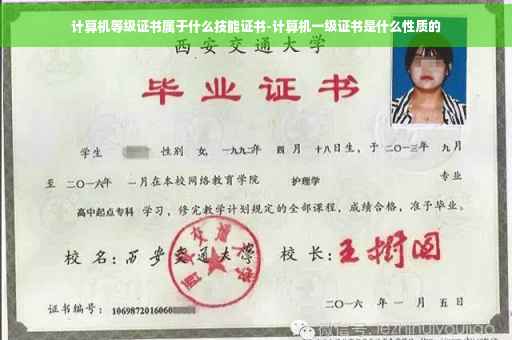 计算机等级证书属于什么技能证书-计算机一级证书是什么性质的
西安交通大学
毕业证书
学生 性别 女, 一九九二年 四 月 十八日生, 于 二〇一三年 九月
至 二〇一六年 一月在本校网络教育学院 护理学 专业
高中起点专科 学习, 修完教学计划规定的全部课程, 成绩合格, 准予毕业。
校 名: 西安交通大学 校 长: 王树国
西安交通大学
证书编号: 1069872016060
二〇一六 年 一 月 五 日
微信号: jezhinuiyoujiao